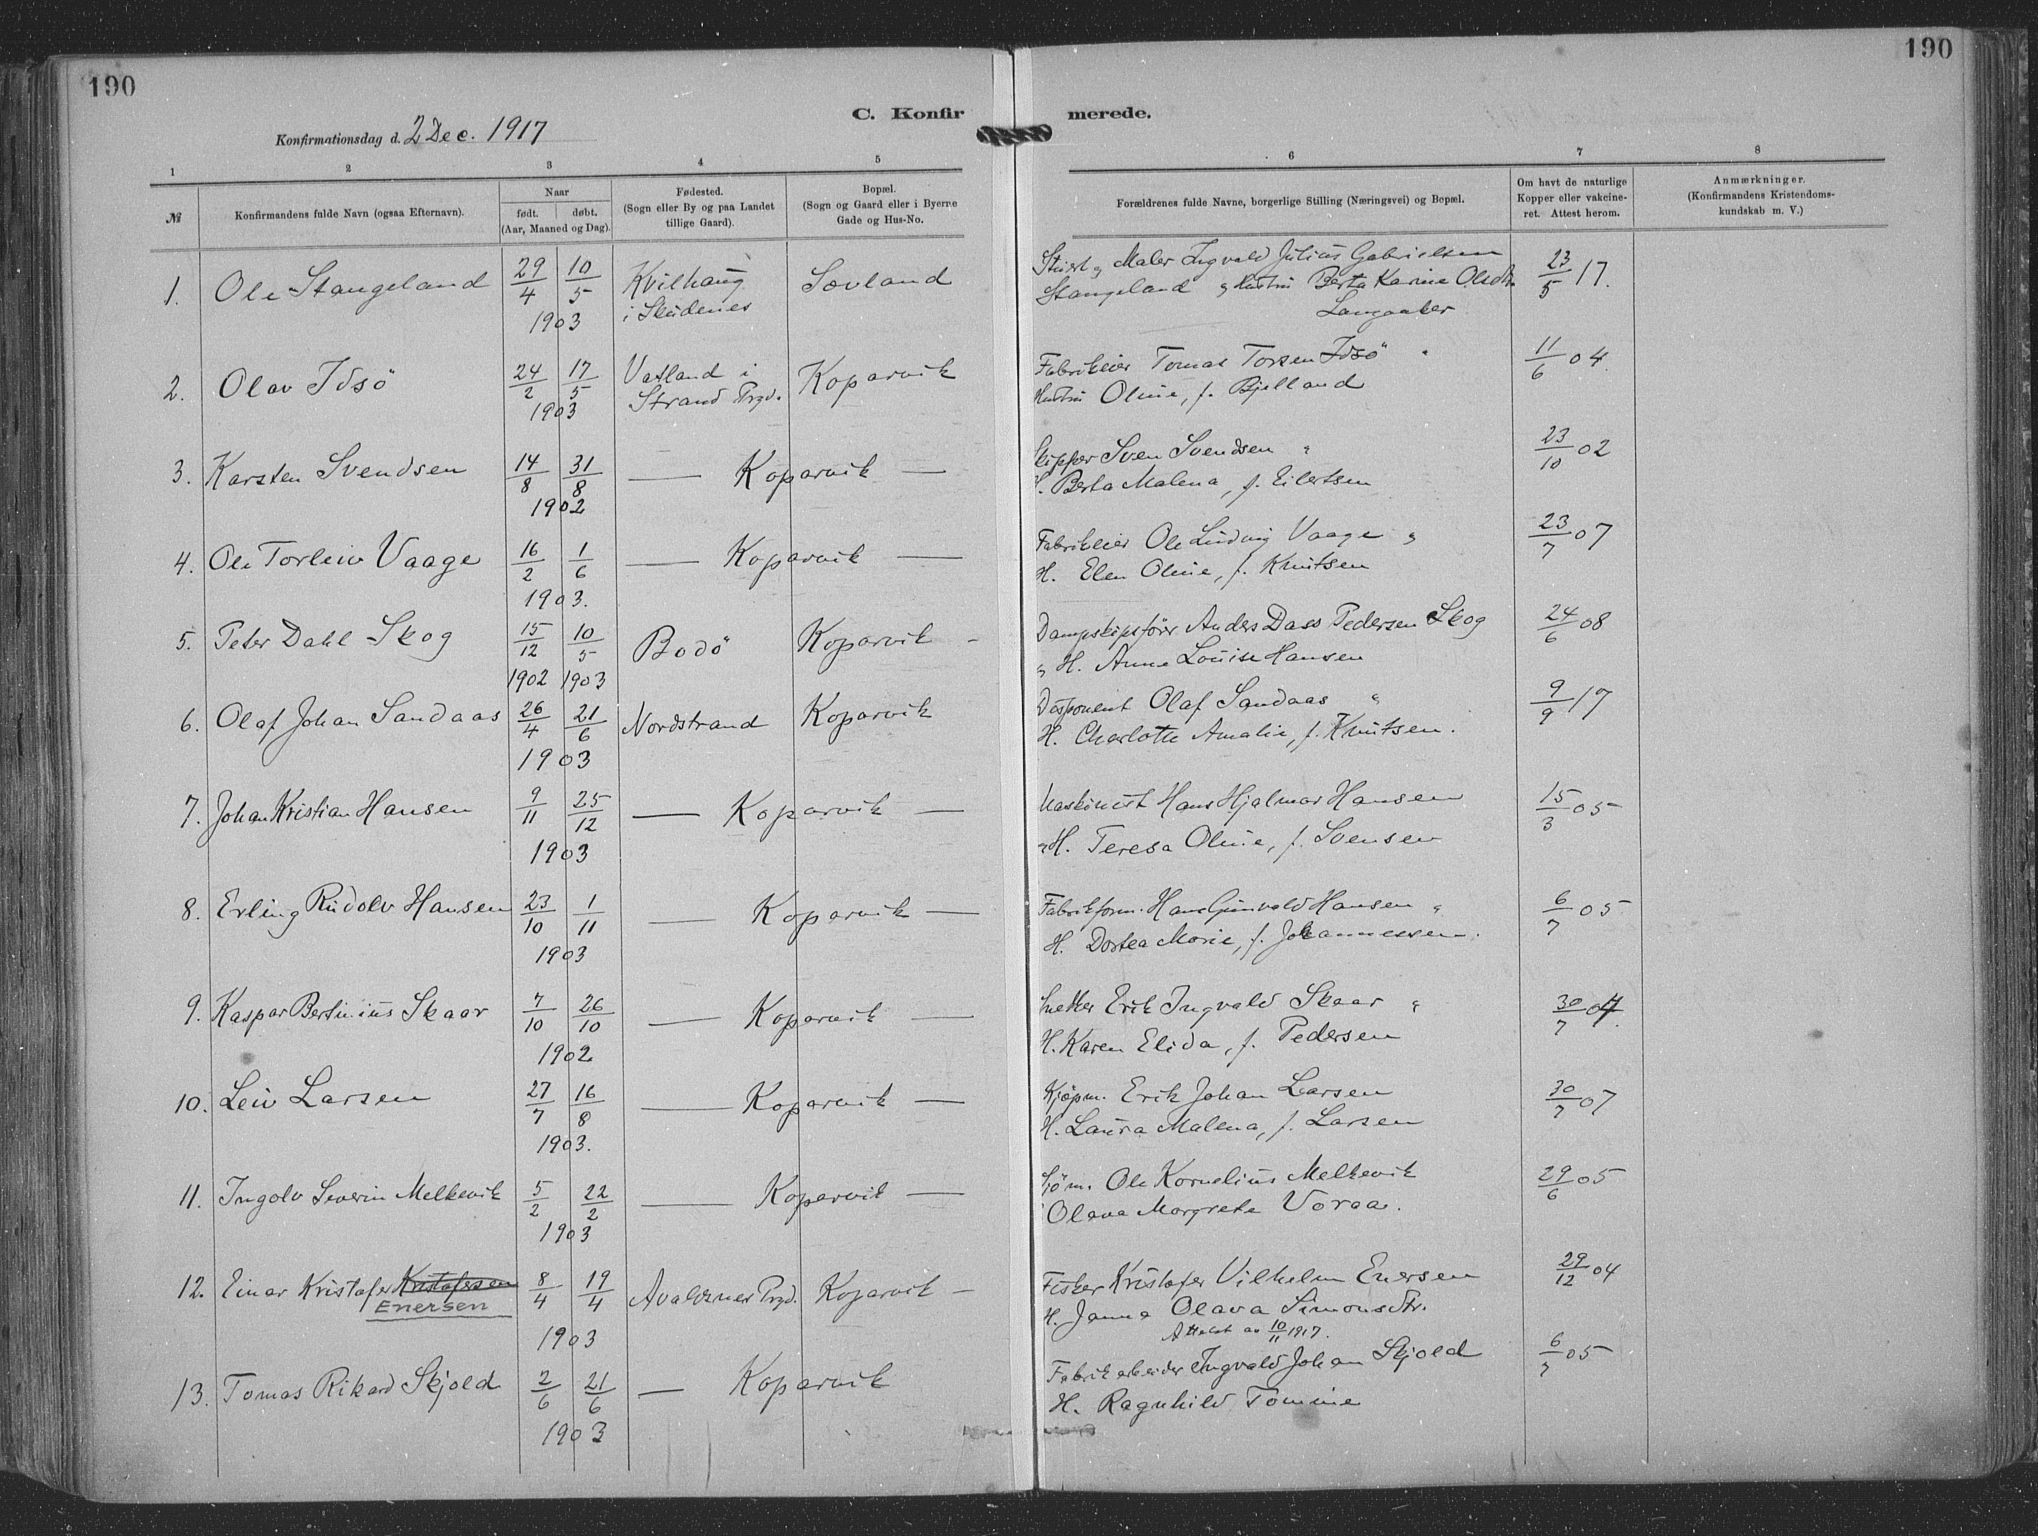 190
190
C. Konfirmerede.
Konfirmationsdag d. 2 Dec. 1917
1 2 3 4 5 6 7 8
№
Konfirmandens fulde Navn (ogsaa Efternavn).
Naar
født. døbt.
(Aar, Maaned og Dag).
Fødested.
(Sogn eller By og paa Landet
tillige Gaard).
Bopæl.
(Sogn og Gaard eller i Byerne
Gade og Hus-No.
Forældrenes fulde Navne, borgerlige Stilling (Næringsvei) og Bopæl.
Om havt de naturlige
Kopper eller vakcine-
ret. Attest herom.
Anmærkninger.
(Konfirmandens Kristendoms-
kundskab m. V.)
1. Ole Stangeland 29/4 10/5 1903 Kvilhaug i Skudenes Sævland
Maler Ingvald Julius Gabrielsen
Stangeland og Hustru Berta Karine Olsdtr.
Langaaker
23/5 17.
2. Olav Idsö 24/2 17/5 1903 Vatland i Strand Prgd. Koparvik
Fabrikeier Tomas Torsen Idsö "
Hustru Oline, f. Bjelland
11/6 04.
3. Karsten Svendsen 14/8 31/8 1902 — Koparvik —
Skipper Sven Svendsen "
H. Berta Malena, f. Eilertsen
23/10 02
4. Ole Torleiv Vaage 16/2 1/6 1903. — Koparvik —
Fabrikeier Ole Ludvig Vaage "
H. Elen Oline, f. Knutsen
23/7 07
5. Peter Dahl Skog 15/12 1902 10/5 1903 Bodö Koparvik -
Dampskipsförer Anders Dass Pedersen Skog
" H. Anne Louise Hansen
24/6 08
6. Olaf Johan Sandaas 26/4 21/6 1903 Nordstrand Koparvik
Disponent Olaf Sandaas "
H. Charlotte Amalie, f. Knutsen.
9/9 17
7. Johan Kristian Hansen 9/11 25/12 1903 — Koparvik —
Maskinist Hans Hjalmar Hansen
" H. Teresa Oline, f. Svensen
15/3 05
8. Erling Rudolv Hansen 23/10 1/11 1903 — Koparvik —
Fabrikform. Hans Gunvald Hansen "
H. Dortea Marie, f. Johannessen.
6/7 05
9. Kaspar Bertinius Skaar 7/10 26/10 1902 — Koparvik —
Erik Ingvald Skaar "
H. Karen Elida, f. Pedersen
30/7 07.
10. Leiv Larsen 27/7 16/8 1903. — Koparvik —
Kjöpm. Erik Johan Larsen
H. Laura Malena, f. Larsen
30/7 07
11. Ingolv Severin Melkevik 5/2 22/2 1903 — Koparvik —
Sjöm. Ole Kornelius Melkevik
Olava Margrete Voraa.
29/6 05
12. Einar Kristofer Kristofersen 8/4 19/4 1903 Avaldsnes Prgd. Koparvik -
Enersen
Fisker Kristofer Vilhelm Enersen
H. Janna Olava Simonsdtr.
Attest av 10/11 1917.
29/12 04
13. Tomas Rikard Skjold 2/6 21/6 1903 — Koparvik
Fabrikarbeider Ingvald Johan Skjold
H. Ragnhild Tomine
6/7 05